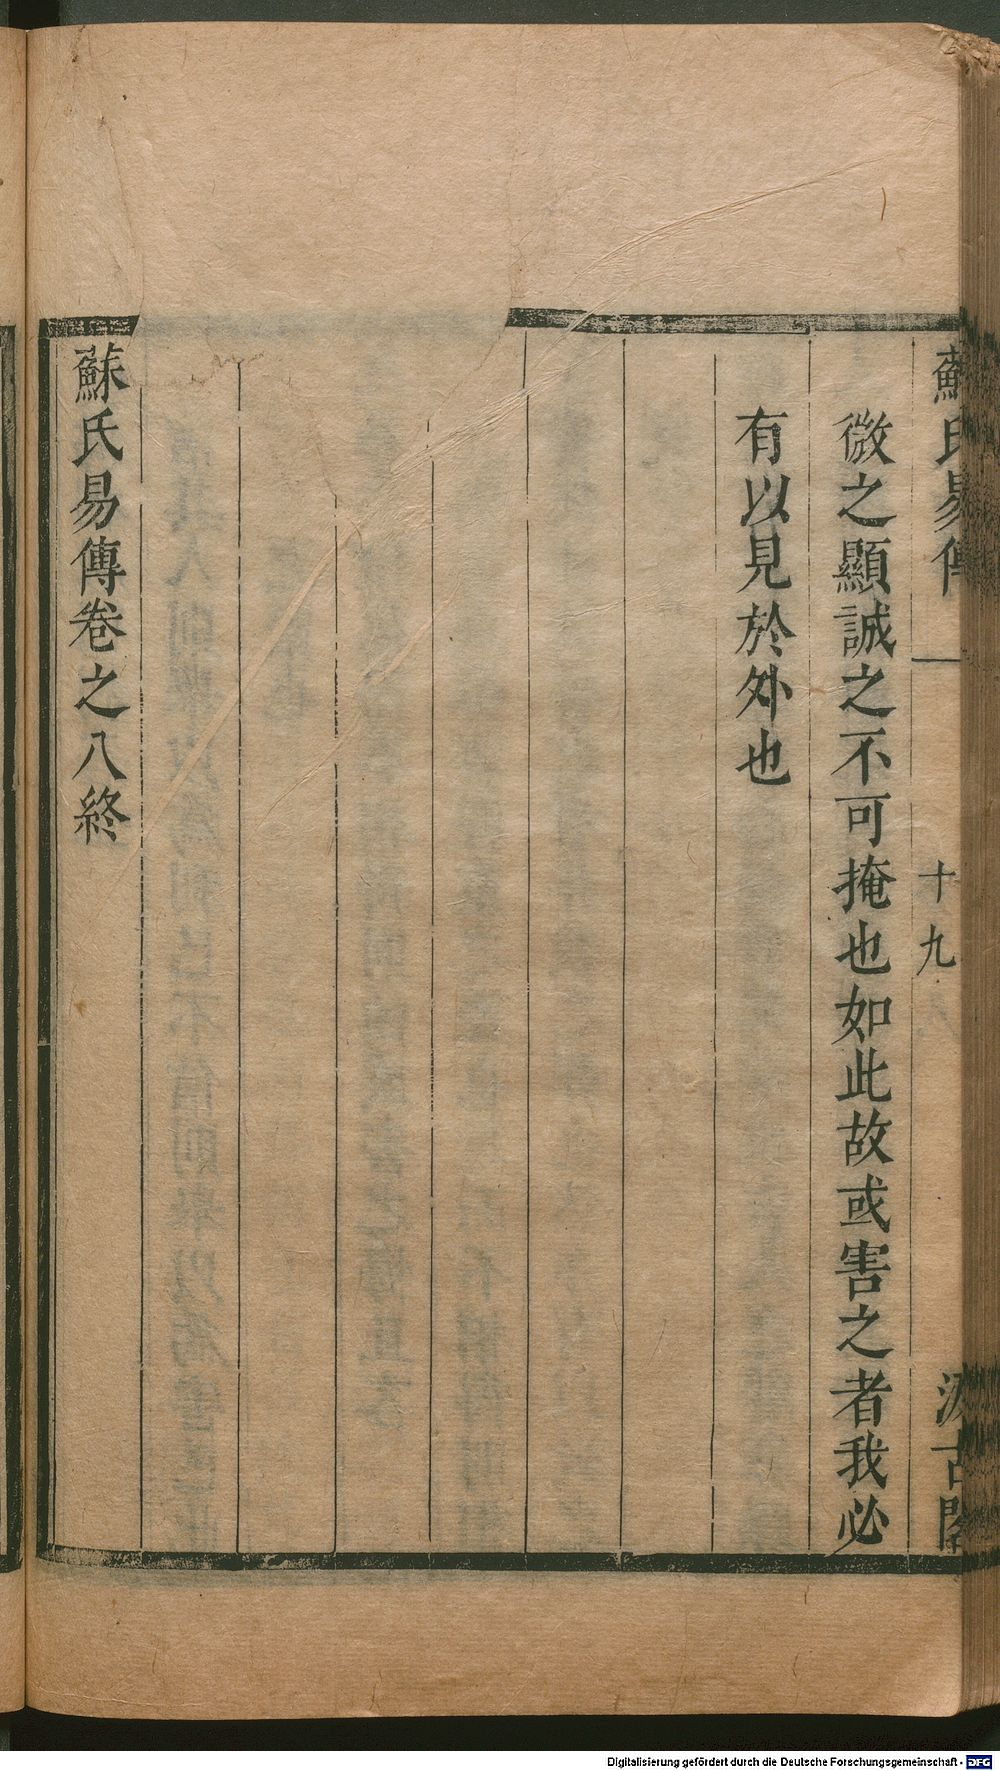 蘇氏易傳
十九
汲古閣
微之顯誠之不可掩也如此故或害之者我必
有以見於外也
蘇氏易傳卷之八終
Digitalisierung gefördert durch die Deutsche Forschungsgemeinschaft - DFG